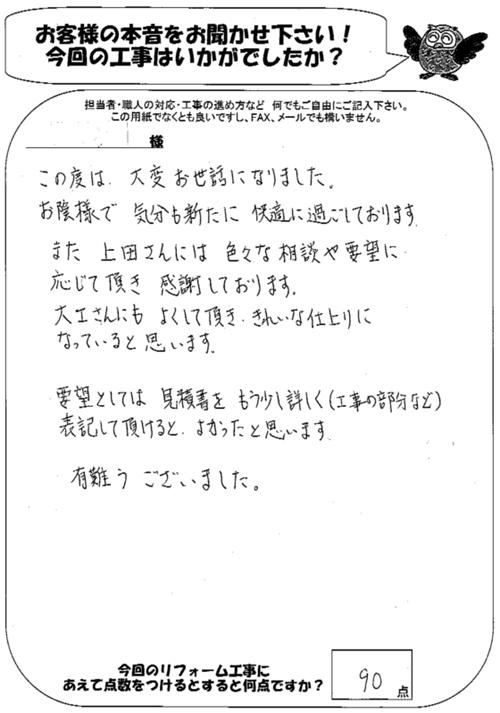 お客様の本音をお聞かせ下さい！
今回の工事はいかがでしたか？
担当者・職人の対応・工事の進め方など 何でもご自由にご記入下さい。
この用紙でなくとも良いですし、FAX、メールでも構いません。
様
この度は、大変お世話になりました。
お陰様で 気分も新たに 快適に過ごしております
また 上田さんには 色々な相談や要望に
応じて頂き 感謝しております。
大工さんにも よくして頂き、きれいな仕上りに
なっていると思います。
要望としては 見積書を もう少し詳しく（工事の部分など）
表記して頂けると、よかったと思います
有難う ございました。
今回のリフォーム工事に
あえて点数をつけるとすると何点ですか？
90点